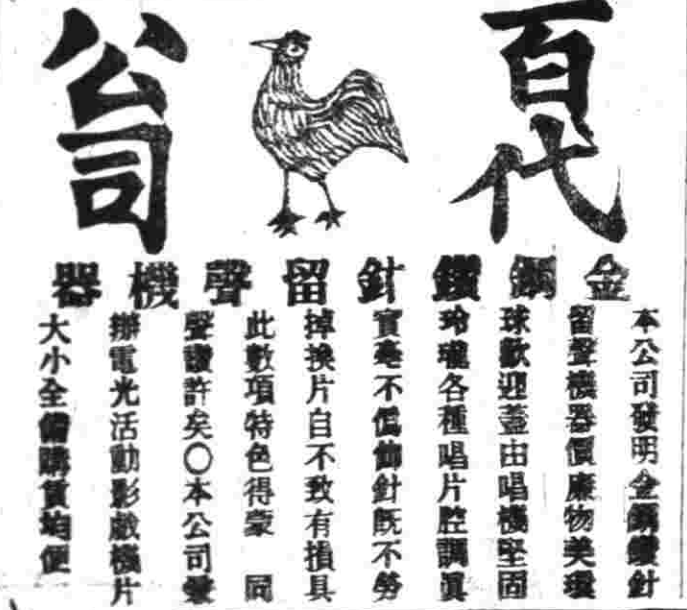 百代
公司
金鋼鑽針留聲機器
本公司發明金鋼鑽針
留聲機器價廉物美環
球歡迎蓋由唱機堅固
玲瓏各種唱片腔調眞
實毫不僞飾針旣不勞
掉換片自不致有損具
此數項特色得蒙　同
聲讚許矣〇本公司兼
辦電光活動影戲機片
大小全備購賃均便